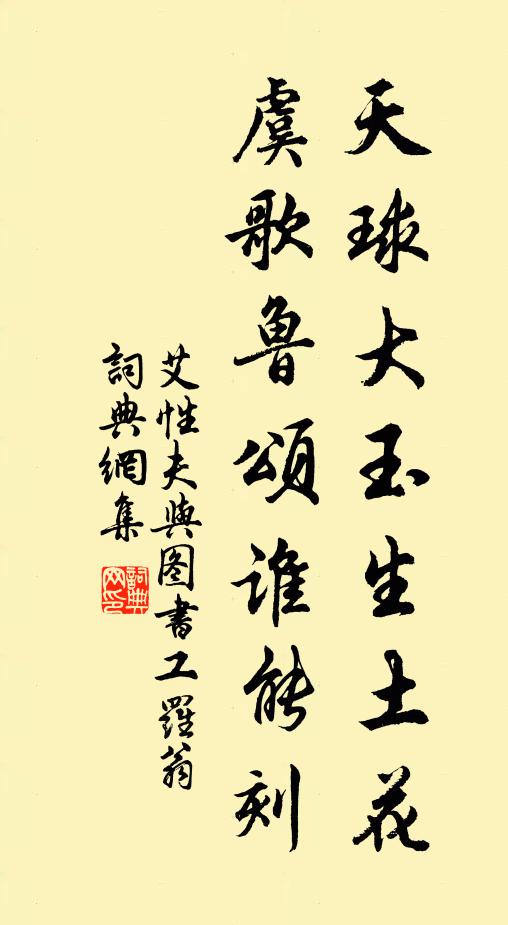 天球大玉生土花
虞歌魯頌誰能刻
艾性夫與图書工羅翁
詞典網集
詞典網印